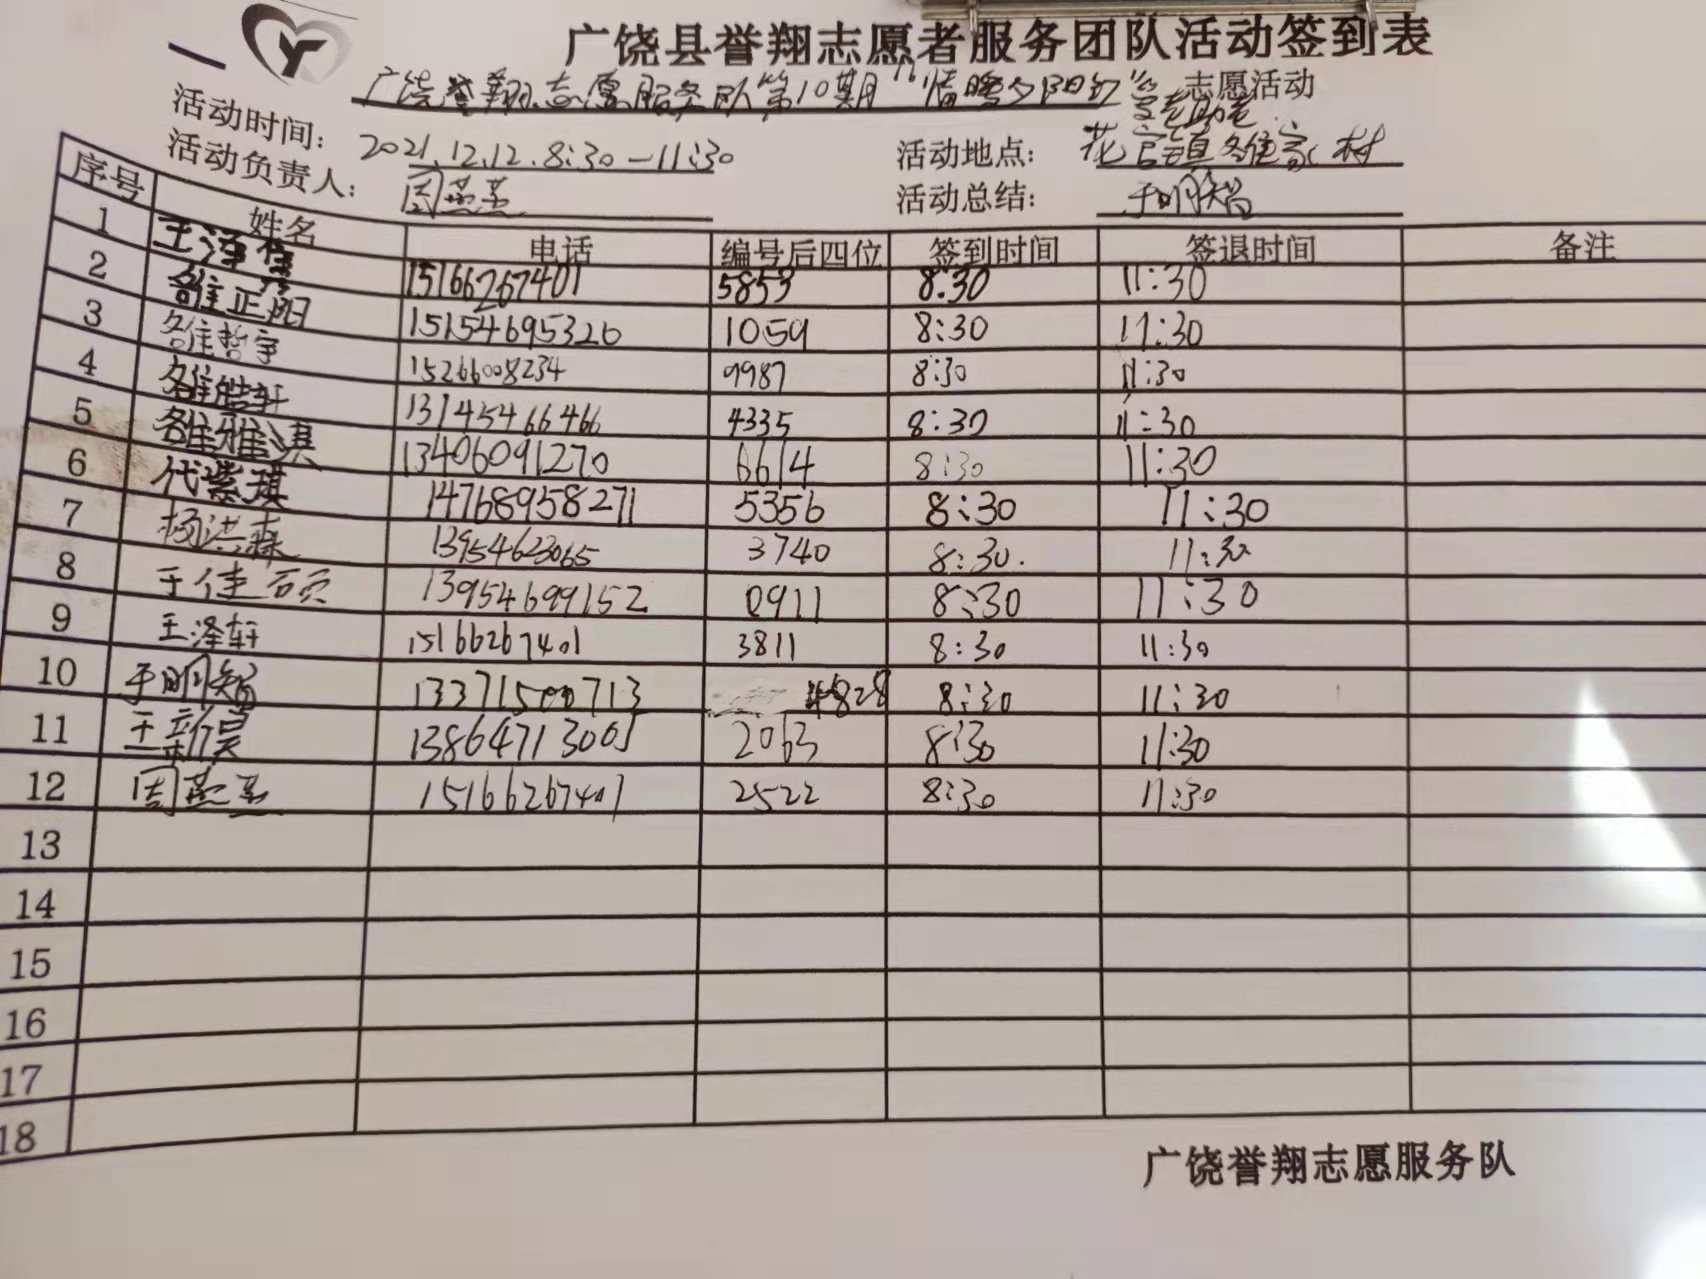 广饶县誉翔志愿者服务团队活动签到表
广饶誉翔志愿服务队第10期"情暖夕阳红" 志愿活动
敬老助老
活动时间: 2021.12.12.8:30-11:30 活动地点: 花官镇雒家村
活动负责人: 周燕燕 活动总结: 于明智
序号 姓名 电话 编号后四位 签到时间 签退时间 备注
1 王泽 15166267401 5853 8:30 11:30
2 雒正阳 15154695326 1059 8:30 11:30
3 雒哲宇 15266008234 9987 8:30 11:30
4 雒皓轩 13145466466 4335 8:30 11:30
5 雒雅淇 13406091270 6614 8:30 11:30
6 代紫琪 14768958271 5356 8:30 11:30
7 杨洪森 13954623065 3740 8:30. 11:30
8 于佳硕 13954699152 0911 8:30 11:30
9 王泽轩 15166267401 3811 8:30 11:30
10 于明智 13371500713 4828 8:30 11:30
11 王新昊 13864713061 2063 8:30 11:30
12 周燕燕 15166267401 2522 8:30 11:30
13
14
15
16
17
18
广饶誉翔志愿服务队